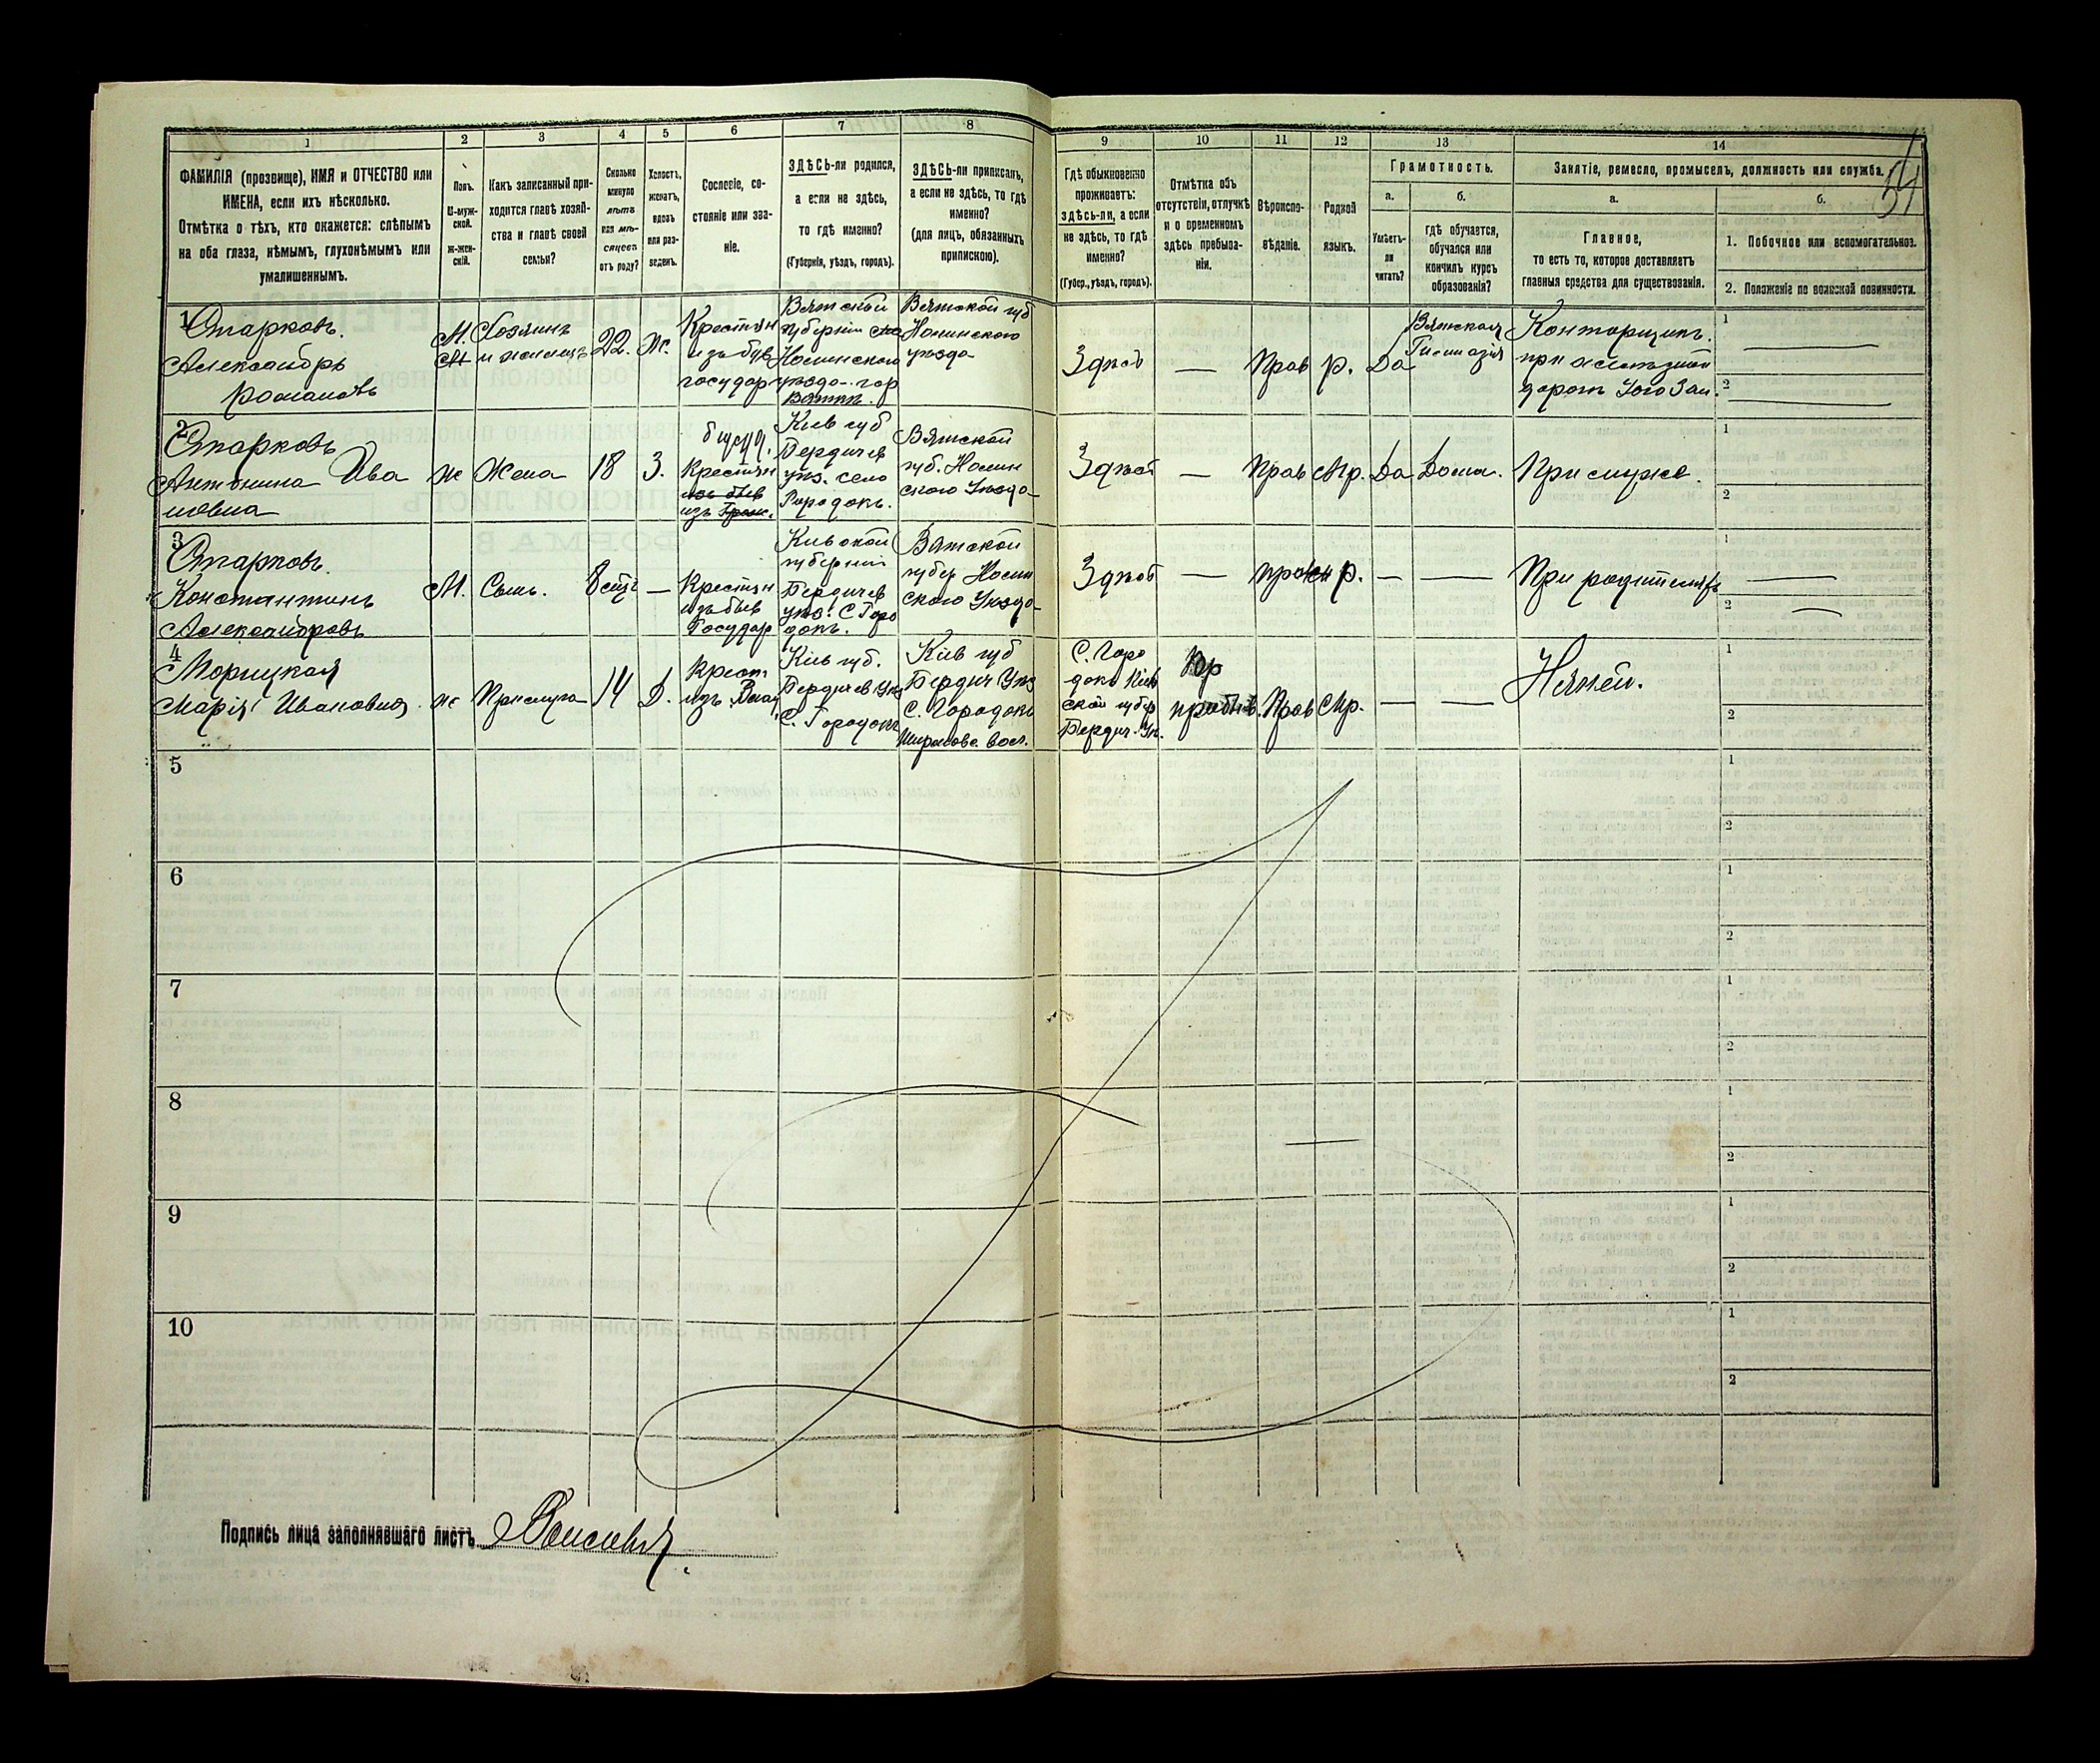 1
2
3
4
5
6
7
8
ФАМИЛІЯ (прозвище), ИМЯ и ОТЧЕСТВО или
ИМЕНА, если ихъ нѣсколько.
Отмѣтка о тѣхъ, кто окажется: слѣпымъ
на оба глаза, нѣмымъ, глухонѣмымъ или
умалишеннымъ.
Полъ.
М-муж-
ской.
ж-жен-
скій.
Какъ записанный при-
ходится главѣ хозяй-
ства и главѣ своей
семьи?
Сколько
минуло
лѣтъ
или мѣ-
сяцевъ
отъ роду?
Холостъ,
женатъ,
вдовъ
или раз-
веденъ.
Сословіе, со-
стояніе или зва-
ніе.
ЗДѢСЬ-ли родился,
а если не здѣсь,
то гдѣ именно?
(Губернія, уѣздъ, городъ).
ЗДѢСЬ-ли приписанъ,
а если не здѣсь, то гдѣ
именно?
(для лицъ, обязанныхъ
припискою).
9
10
11
12
13
14
54
Гдѣ обыкновенно
проживаетъ:
здѣсь-ли, а если
не здѣсь, то гдѣ
именно?
(Губер., уѣздъ, городъ).
Отмѣтка объ
отсутствіи, отлучкѣ
и о временномъ
здѣсь пребыва-
ніи.
Вѣроиспо-
вѣданіе.
Родной
языкъ.
Грамотность.
а.
б.
Умѣетъ-
ли
читать?
гдѣ обучается,
обучался или
кончилъ курсъ
образованія?
Занятіе, ремесло, промыселъ, должность или служба.
а.
б.
Главное,
то есть то, которое доставляетъ
главныя средства для существованія.
1. Побочное или вспомогательное.
2. Положеніе по воинской повинности.
1
Старковъ.
Александръ
Романовъ
М.
Хозяинъ
22.
Ж.
Крестян
изъ быв
государ
Вятской
губерніи
Нолинскаго
уѣзда гор
Вятка.
Вятской губ
Нолинского
уѣзда
Здѣсь
—
Прав
р.
Да
Вятская
Гимназія
Конторщикъ.
при желѣзной
дорогѣ Юго Зап.
1
2
2
Старковъ
Антонина Ива
новна
ж
Жена
18
З.
Крестян
изъ
Кіев губ
Бердичев
уѣз. село
Городокъ.
Вятской
губ. Нолин
ского Уѣзда
Здѣсь
—
Прав
Мр.
Да
Дома.
При мужѣ.
1
2
3
Старковъ
Константинъ
Александровъ
М.
Сынъ.
—
Крестян
изъ быв
Государ
Кіевской
губерніи
Бердичев
уѣз. С. Горо
докъ.
Вятской
губер Нолин
ского Уѣзда
Здѣсь
—
прав
р.
—
—
При родителяхъ
1
2
4
Морицкая
Марія Ивановна
ж
Прислуга
14
Д.
Крест
изъ
Кіев губ.
Бердичев Уѣз
С. Городокъ
Кіев губ
Бердич Уѣз
С. Городокъ
С. Горо
докъ Кіев
ской губер
Бердич. Уѣ.
Вр
пребыв.
Прав
Мр.
—
—
1
2
5
1
2
6
1
2
7
1
2
8
1
2
9
1
2
10
1
2
Подпись лица заполнявшаго листъ